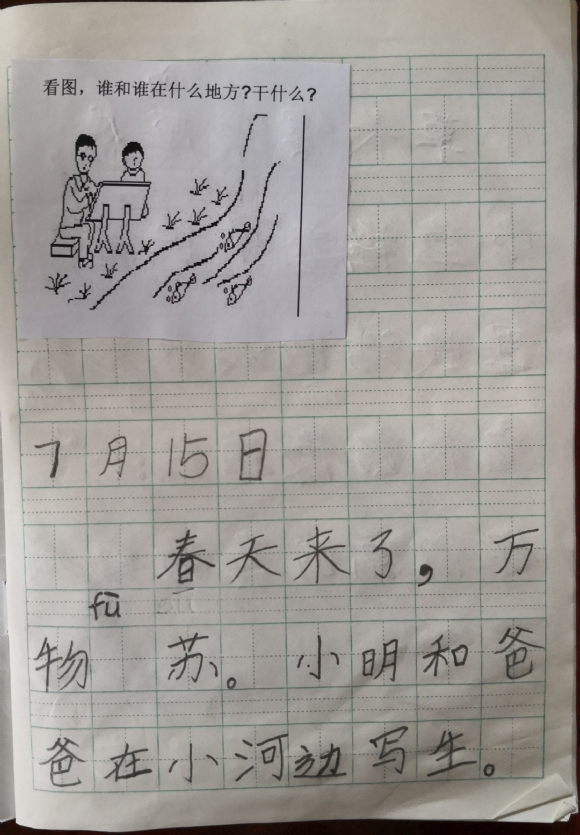 看图，谁和谁在什么地方?干什么?
7月15日
春天来了，万
fū
物 苏。小明和爸
爸在小河边写生。